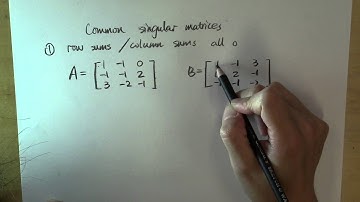 Common singular matrices
① row sums / column sums all 0
1 -1 0 -1 3
A = -1 -1 2 B = 2 -1
3 -2 -1 -1